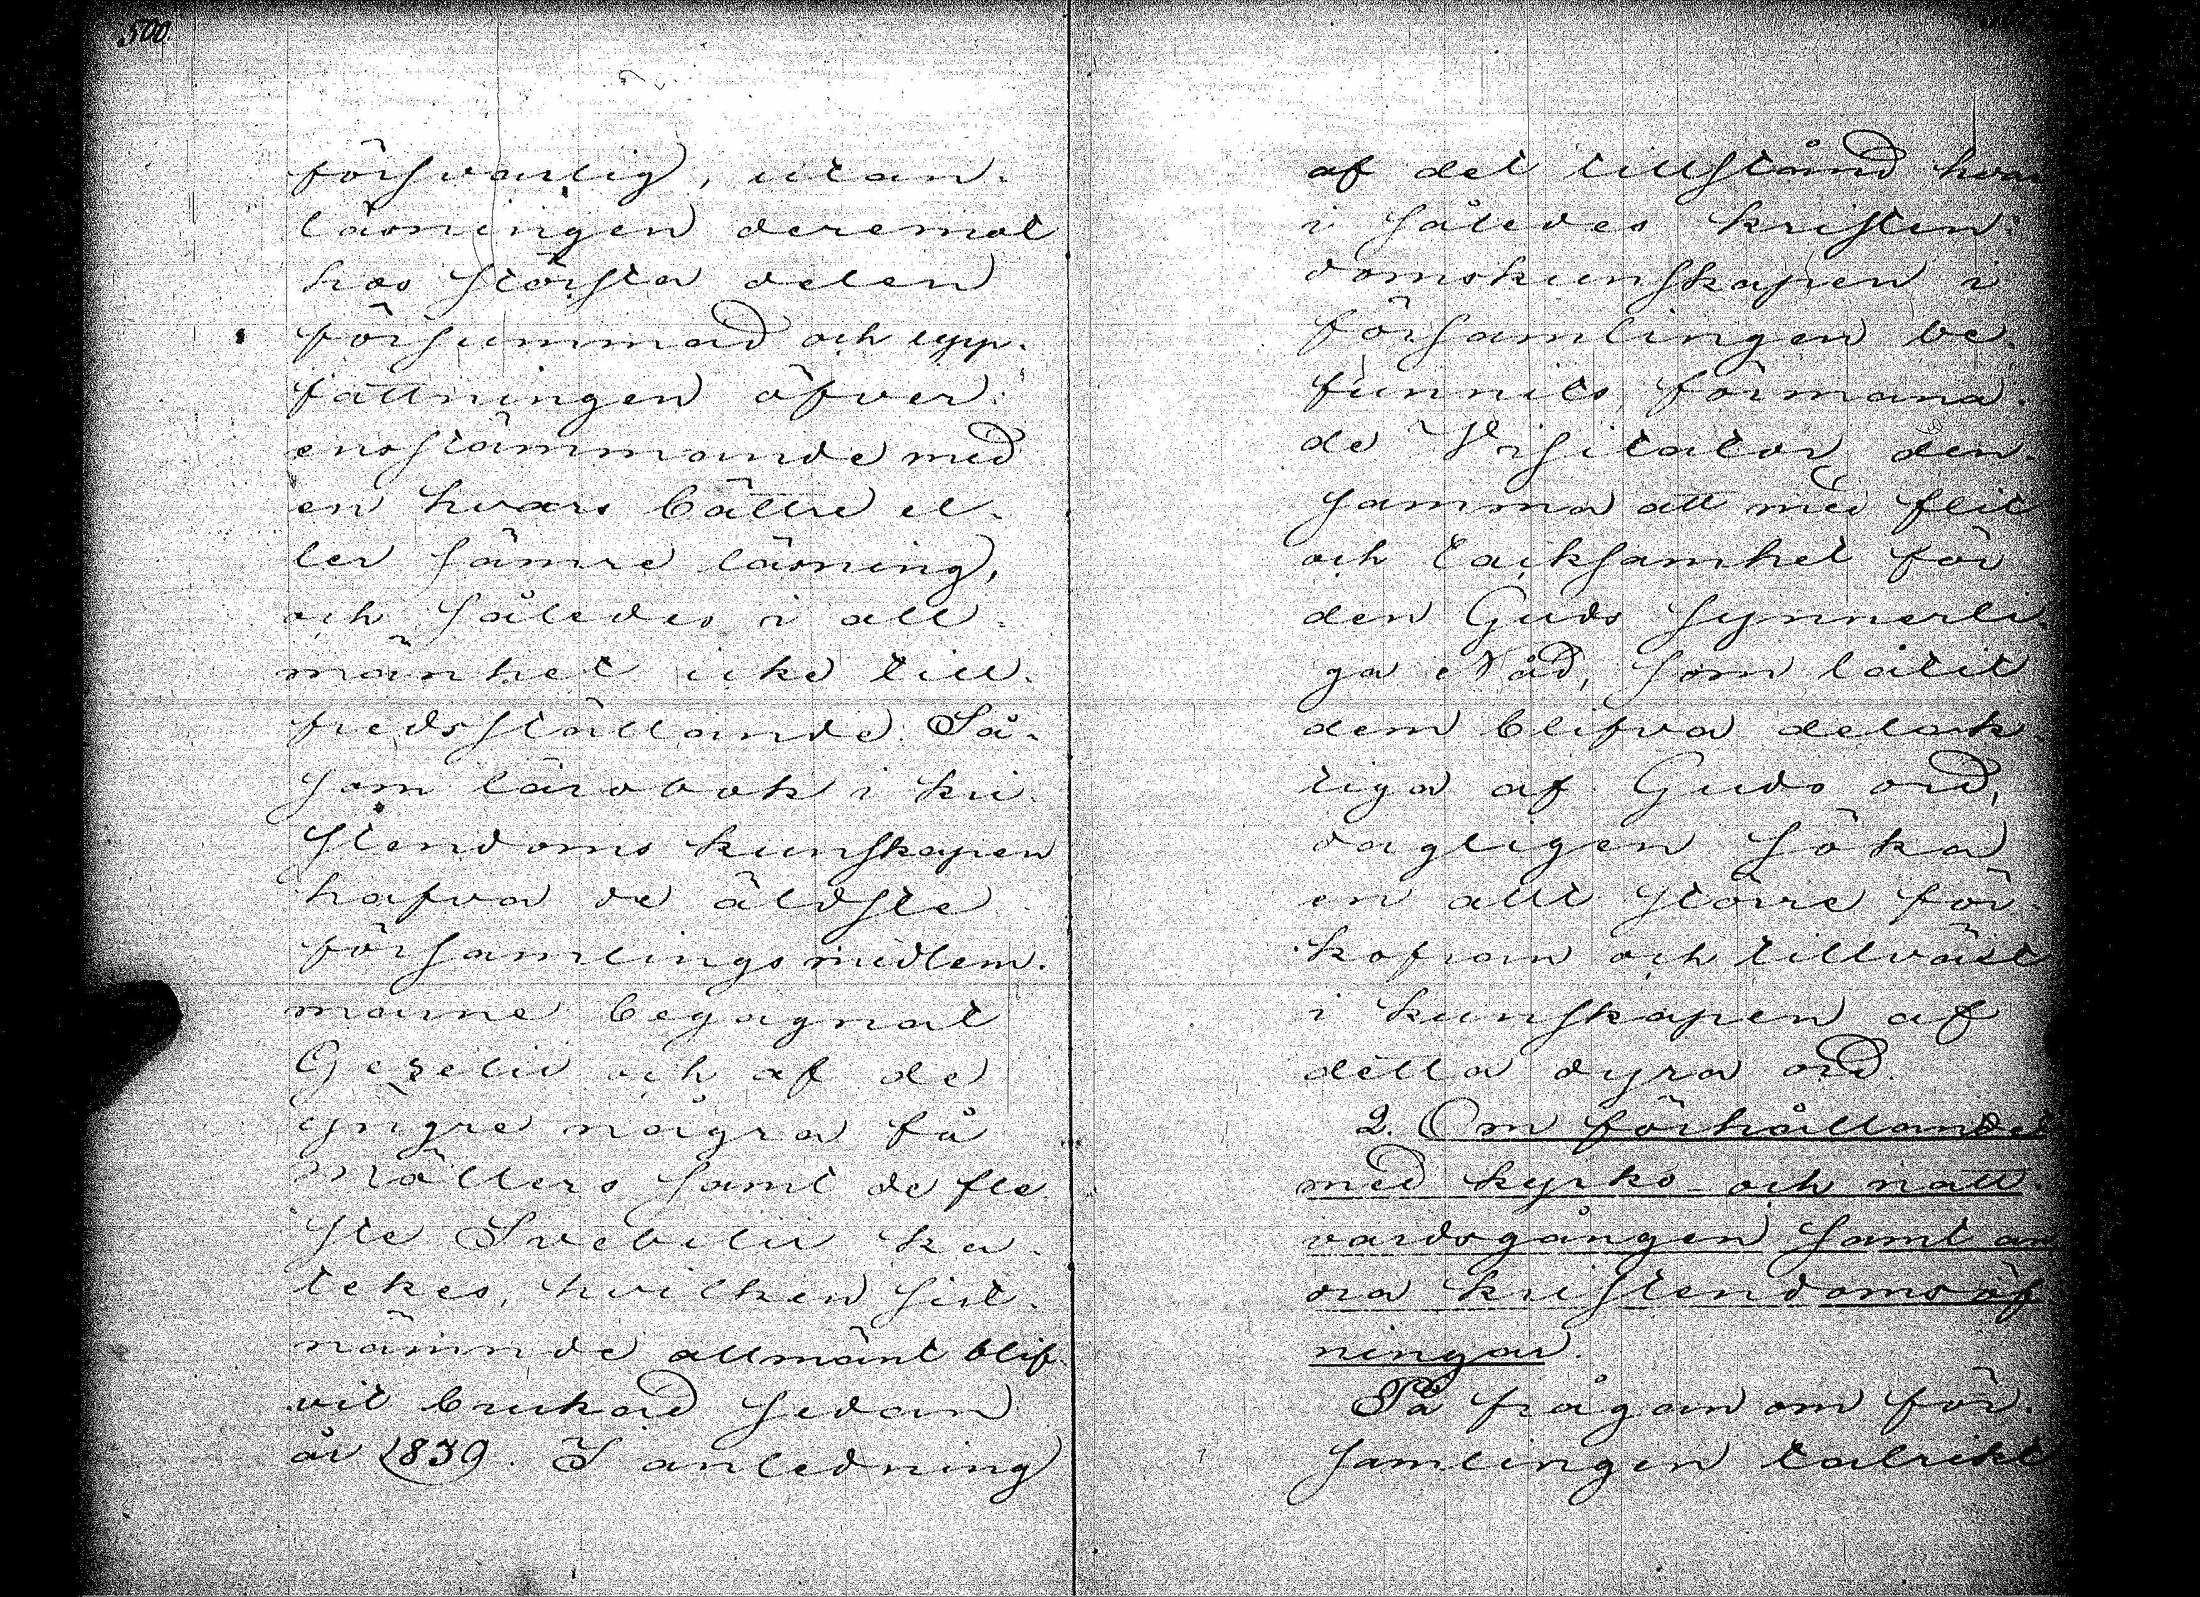 500.
försvarlig, utan-
läsningen deremot
hos största delen
försummad och upp-
fattningen öfver-
ensstämmande med
en hvars bättre el-
ler sämre läsning,
och således i all-
mänhet icke till-
fredsställande. Så-
som lärobok i kri-
stendoms kunskapen
hafva de äldste
församlingsmedlem-
marne begagnat
Gezelii och af de
yngre några få
Möllers samt de fle
ste Svebilii ka-
tekes, hvilken sist-
nämnde allmänt blif-
vit brukad sedan
år 1839. I anledning
af det tillstånd hvar
i således kristen-
domskunskapen i
församlingen be-
funnits, förmana-
de Visitator den-
samma att med flit
och tacksamhet för
den Guds synnerli-
ga Nåd, som låtit
dem blifva delak-
tiga af Guds ord,
dagligen söka
en allt större för-
kofran och tillväxt
i kunskapen af
detta dyra ord.
2. Om förhållandet
med kyrko- och natt-
vardsgången samt an
dra kristendomsöf
ningar.
På frågan om för-
samlingen talrikt